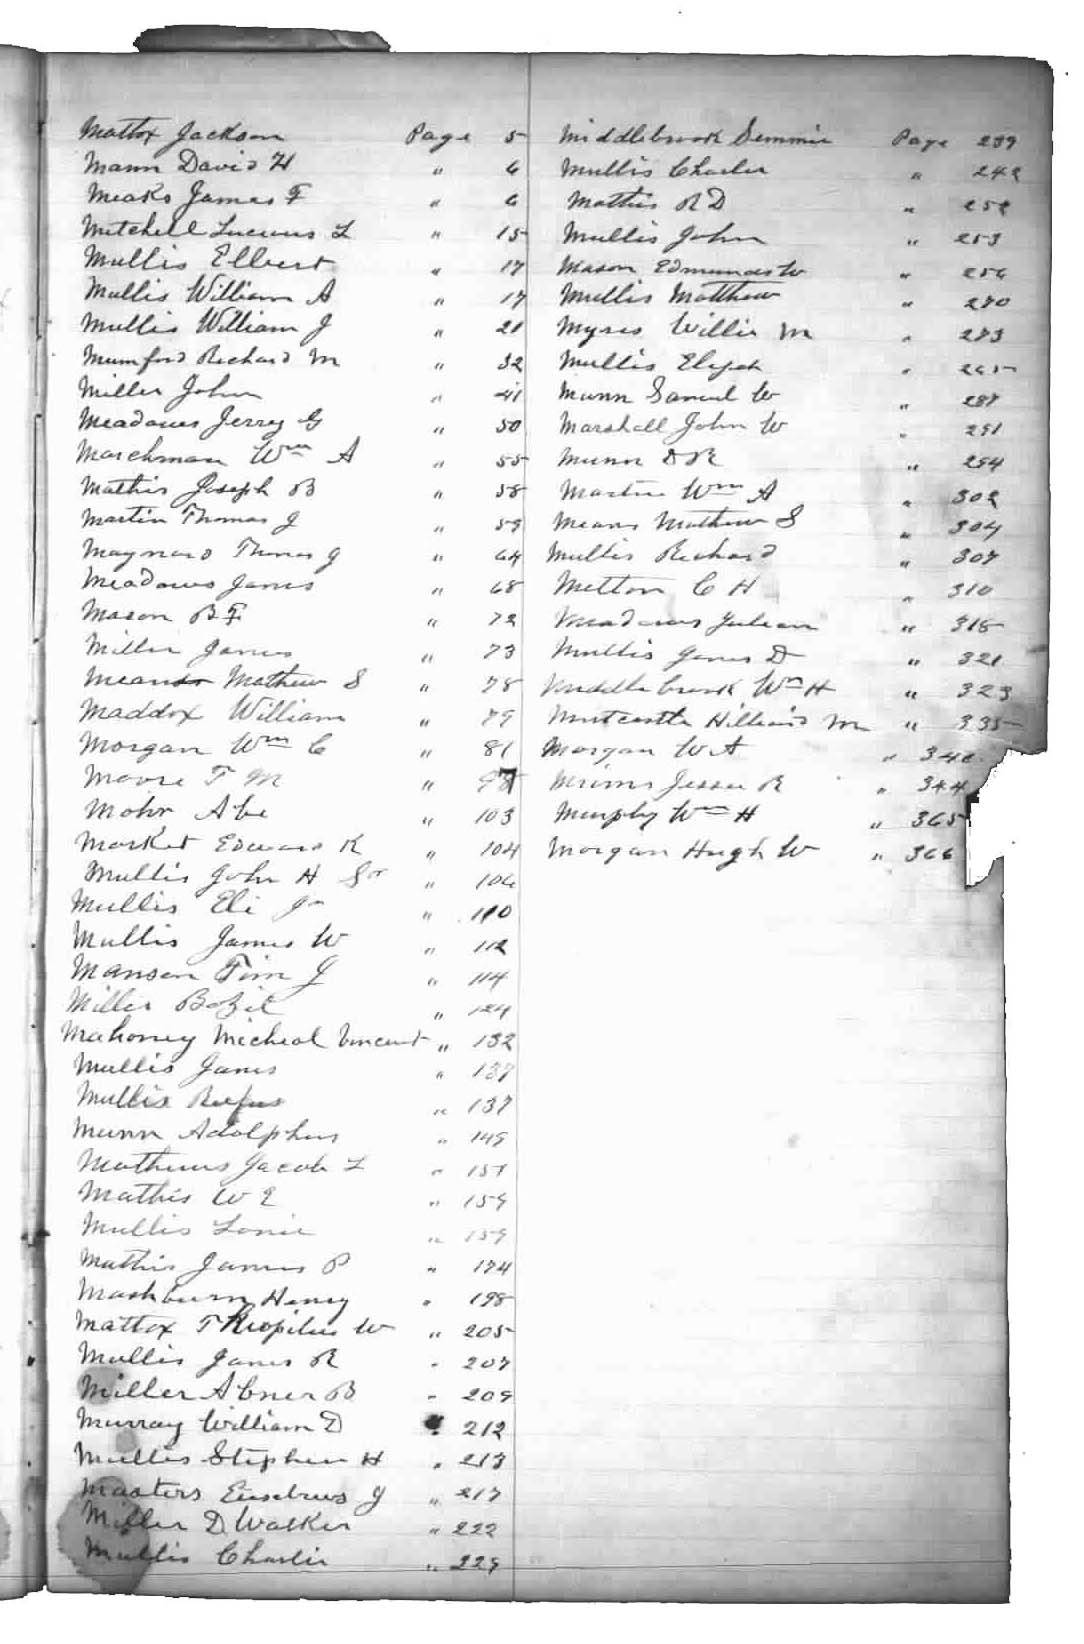 Mattox Jackson Page 5
Mann David H " 6
Meaks James F " 6
Mitchell Lucius L " 15
Mullis Elbert " 17
Mullis William A " 17
Mullis William J " 21
Mumford Richard M " 32
Miller John " 41
Meadows Jerry G " 50
Marchman Wm A " 55
Mathis Joseph B " 58
Martin Thomas J " 59
Maynard Thomas J " 64
Meadows James " 68
Mason B F " 72
Miller James " 73
Means Mathew S " 78
Maddox William " 79
Morgan Wm C " 81
Moore T M "
Mohr Abe " 103
Market Edward K " 104
Mullis John H Sr " 106
Mullis Eli Jr " 110
Mullis James W " 112
Manson Tim J " 114
Miller Bazil " 124
Mahoney Micheal Vincent " 132
Mullis James " 137
Mullis Rufus " 137
Munn Adolphus " 149
Mathews Jacob L " 157
Mathis W E " 159
Mullis Lonie " 159
Mathis James P " 174
Mashburn Henry " 198
Mattox Theopilus W " 205
Mullis James R " 207
Miller Abner B " 209
Murray William D " 212
Mullis Stephen H " 213
Masters Eusebius J " 217
Miller D Walker " 222
Mullis Charlie " 229
Middlebrook Semmie Page 239
Mullis Charlie " 242
Mathis R D " 252
Mullis John " 253
Mason Edmund W " 256
Mullis Matthew " 270
Myres Willie M " 273
Mullis Elijah "
Munn Samuel W " 287
Marshall John W " 291
Munn D R " 294
Martin Wm A " 302
Means Mathew S " 304
Mullis Richard " 307
Metton C H " 310
Meadows Julian " 318
Mullis James D " 321
Middlebrook Wm H " 323
Hilliard M " 335
Morgan W A " 340
Mimms Jesse R " 344
Murphy Wm H " 365
Morgan Hugh W " 366